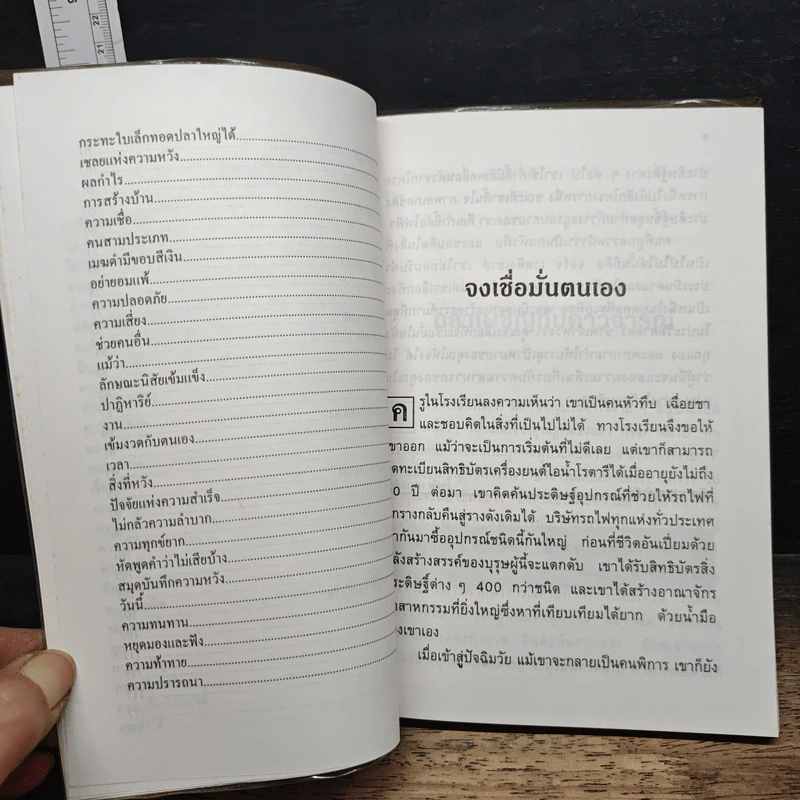 กระทะใบเล็กทอดปลาใหญ่ได้
เชลยแห่งความหวัง
ผลกำไร
การสร้างบ้าน
ความเชื่อ
คนสามประเภท
เมฆดำมีขอบสีเงิน
อย่ายอมแพ้
ความปลอดภัย
ความเสี่ยง
ช่วยคนอื่น
แม้ว่า
ลักษณะนิสัยเข้มแข็ง
ปาฏิหาริย์
งาน
เข้มงวดกับตนเอง
เวลา
สิ่งที่หวัง
ปัจจัยแห่งความสำเร็จ
ไม่กลัวความลำบาก
ความทุกข์ยาก
หัดพูดคำว่าไม่เสียบ้าง
สมุดบันทึกความหวัง
วันนี้
ความทนทาน
หยุดมองและฟัง
ความท้าทาย
ความปรารถนา
จงเชื่อมั่นตนเอง
ครูในโรงเรียนลงความเห็นว่า เขาเป็นคนหัวทึบ เฉื่อยชา
และชอบคิดในสิ่งที่เป็นไปไม่ได้ ทางโรงเรียนจึงขอให้
เขาออก แม้ว่าจะเป็นการเริ่มต้นที่ไม่ดีเลย แต่เขาก็สามารถ
ทะเบียนสิทธิบัตรเครื่องยนต์ไอน้ำโรตารีได้เมื่ออายุยังไม่ถึง
0 ปี ต่อมา เขาคิดค้นประดิษฐ์อุปกรณ์ที่ช่วยให้รถไฟที่
กรางกลับคืนสู่รางดังเดิมได้ บริษัทรถไฟทุกแห่งทั่วประเทศ
กันมาซื้ออุปกรณ์ชนิดนี้กันใหญ่ ก่อนที่ชีวิตอันเปี่ยมด้วย
ลังสร้างสรรค์ของบุรุษผู้นี้จะแตกดับ เขาได้รับสิทธิบัตรสิ่ง
ระดิษฐ์ต่าง ๆ 400 กว่าชนิด และเขาได้สร้างอาณาจักร
สาหกรรมที่ยิ่งใหญ่ซึ่งหาที่เทียบเทียมได้ยาก ด้วยน้ำมือ
องเขาเอง
เมื่อเข้าสู่ปัจฉิมวัย แม้เขาจะกลายเป็นคนพิการ เขาก็ยัง